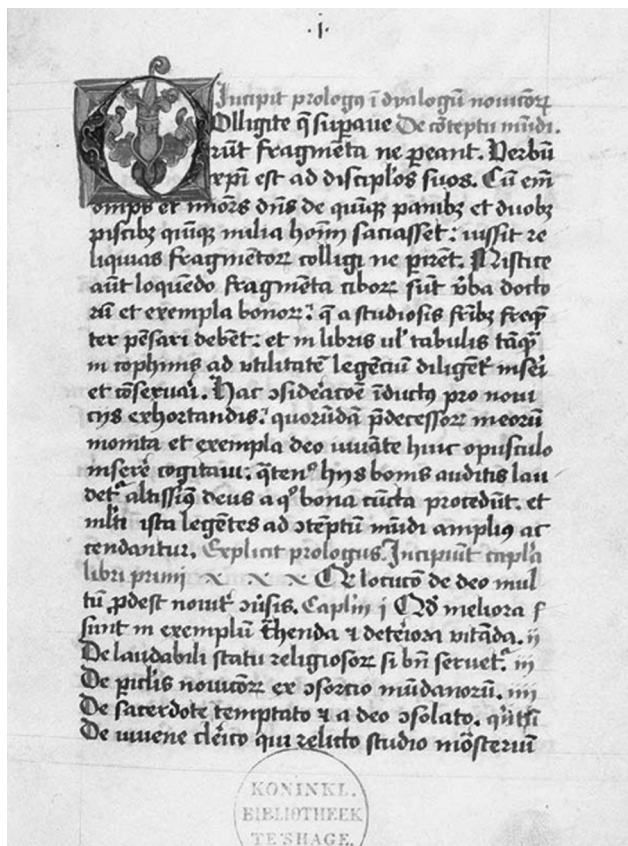 ·1·
Incipit prologꝰ ī dyalogū nouicoꝝ
Olligite q̄ supaue De cōteptu mūdi.
rūt fragmēta ne ꝑeant. Verbū
xp̄i est ad discipl'os suos. Cū em̄
omp̄s et miōrs dn̄s de quīqꝫ panibꝫ et duobꝫ
piscibꝫ quīqꝫ milia hom̄ saciasset: iussit re
liquias fragmentoꝝ colligi ne ꝑirēt. Mistice
aūt loquēdo fragmēta ciboꝝ sūt v̄ba docto
rū et exempla bonoꝝ: q̄ a studiosis fr̄ibꝫ freq̄
ter pēsari debēt: et in libris ul' tabulis tāq̄
in cophinis ad vtilitatē legēciū diligēt' inseri
et cōseruari. Hac ɔsid'acōe īductꝰ pro noui
cijs exhortandis: quorūdā p̄decessoꝝ meorū
monita et exempla deo iuuāte huic opusculo
inserē cogitaui. q̄tenꝰ hijs bonis auditis lau
det' altissimꝰ deus a qͦ bona cūcta procedūt. et
ml'ti ista legētes ad ɔtēptū mūdi ampliꝰ ac
cendantur. Explicit prologus. Incipiūt cap̄la
libri primi x x x Qr̄ locucō de deo mul
tū ꝓdest nouit' ɔūsis. Caplm̄ i Qd̄ meliora s
sunt in exemplū tn̄enda ⁊ det'iora vitāda. ij
De laudabili statu religiosoꝝ si bn̄ seruet'. iij
De ꝑicl'is nouicoꝝ ex ɔsorcio mūdanorū. iiij
De sacerdote temptato ⁊ a deo ɔsolato. qͥtū
De iuuene cl'ico qui relicto studio mōsteriū
KONINKL.
BIBLIOTHEEK
TE'SHAGE.